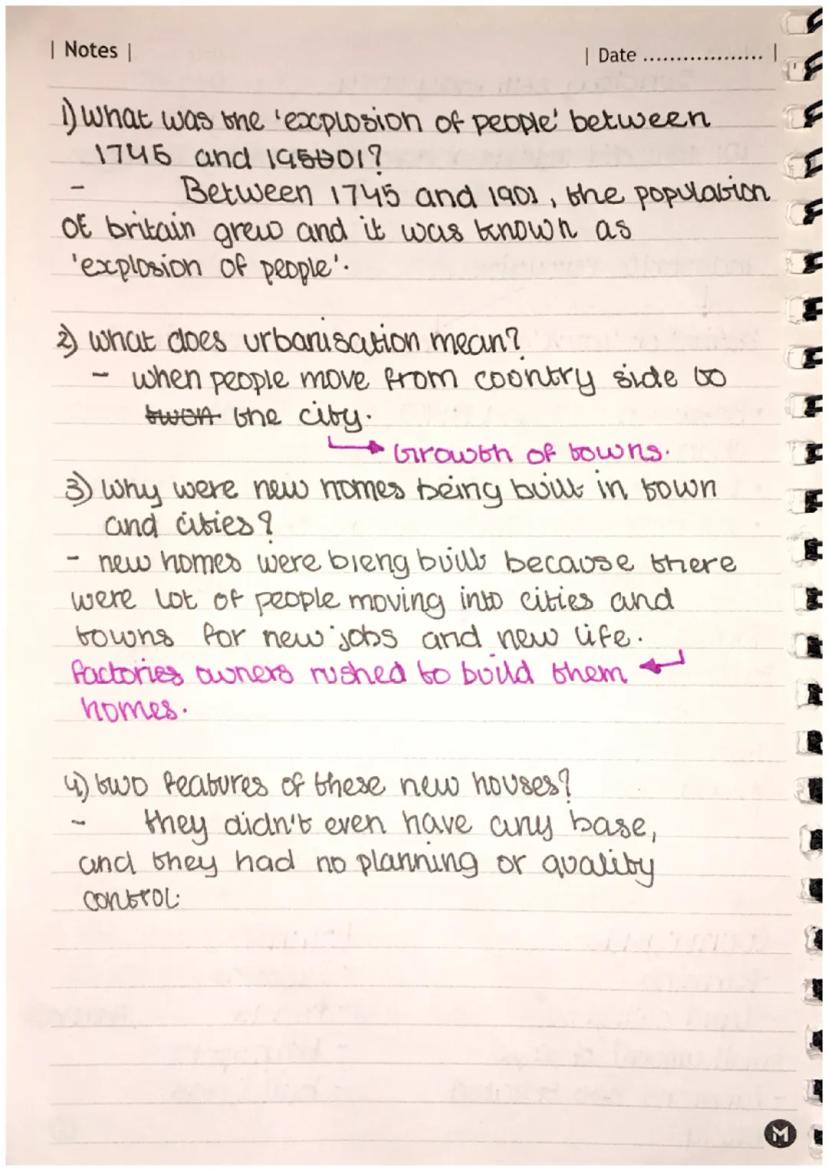 | Notes |
| Date .................. |
1) What was the 'explosion of people' between
1745 and 1901?
- Between 1745 and 1901, the population
of britain grew and it was known as
'explosion of people'.
2) what does urbanisation mean?
- when people move from coontry side to
the city.
Growth of towns.
3) Why were new homes being built in town
and cities?
- new homes were bieng built because there
were lot of people moving into cities and
towns for new jobs and new life.
factories owners rushed to build them
homes.
4) two features of these new houses?
- they didn't even have any base,
and they had no planning or quality
control.
M